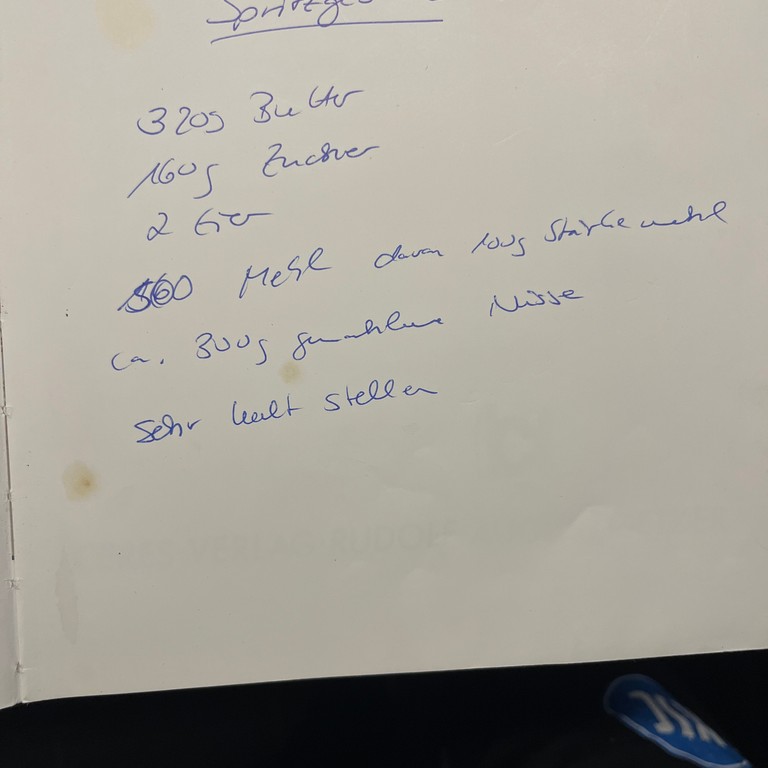 Spritzge
320g Butter
160g Zucker
2 Eier
560 Mehl davon 100g Stärkemehl
ca. 300g gemahlene Nüsse
Sehr kalt stellen